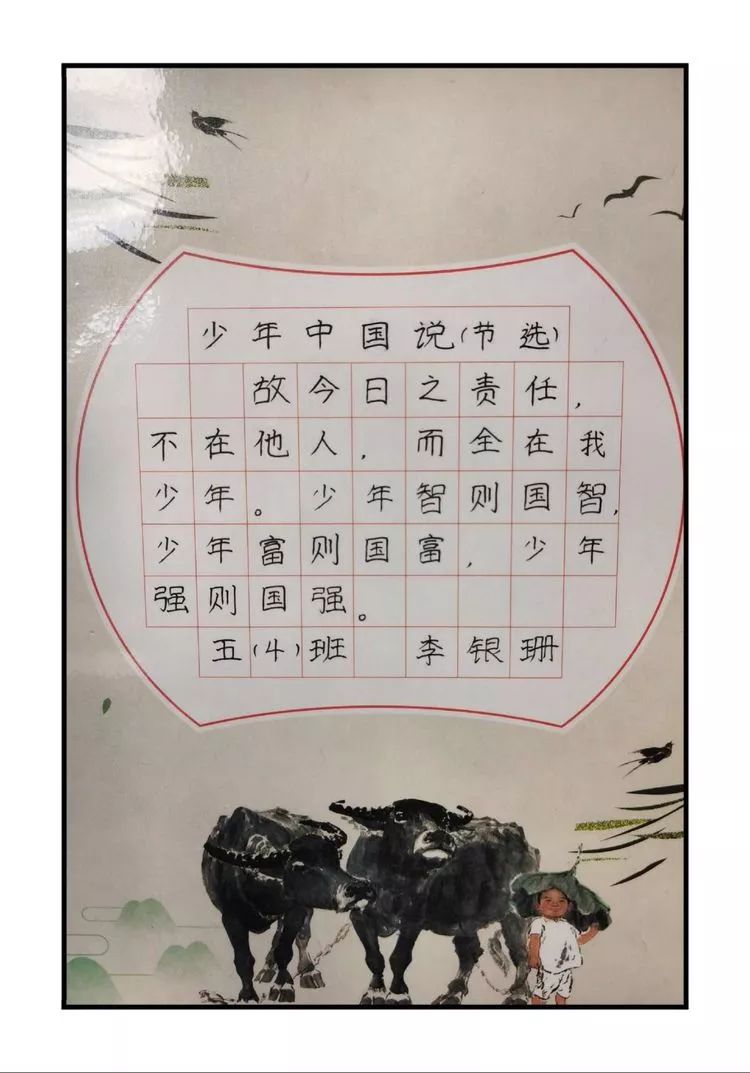 少年中国说(节选)
故今日之责任,
不在他人,而全在我
少年。少年智则国智,
少年富则国富,少年
强则国强。
五(4)班 李银珊